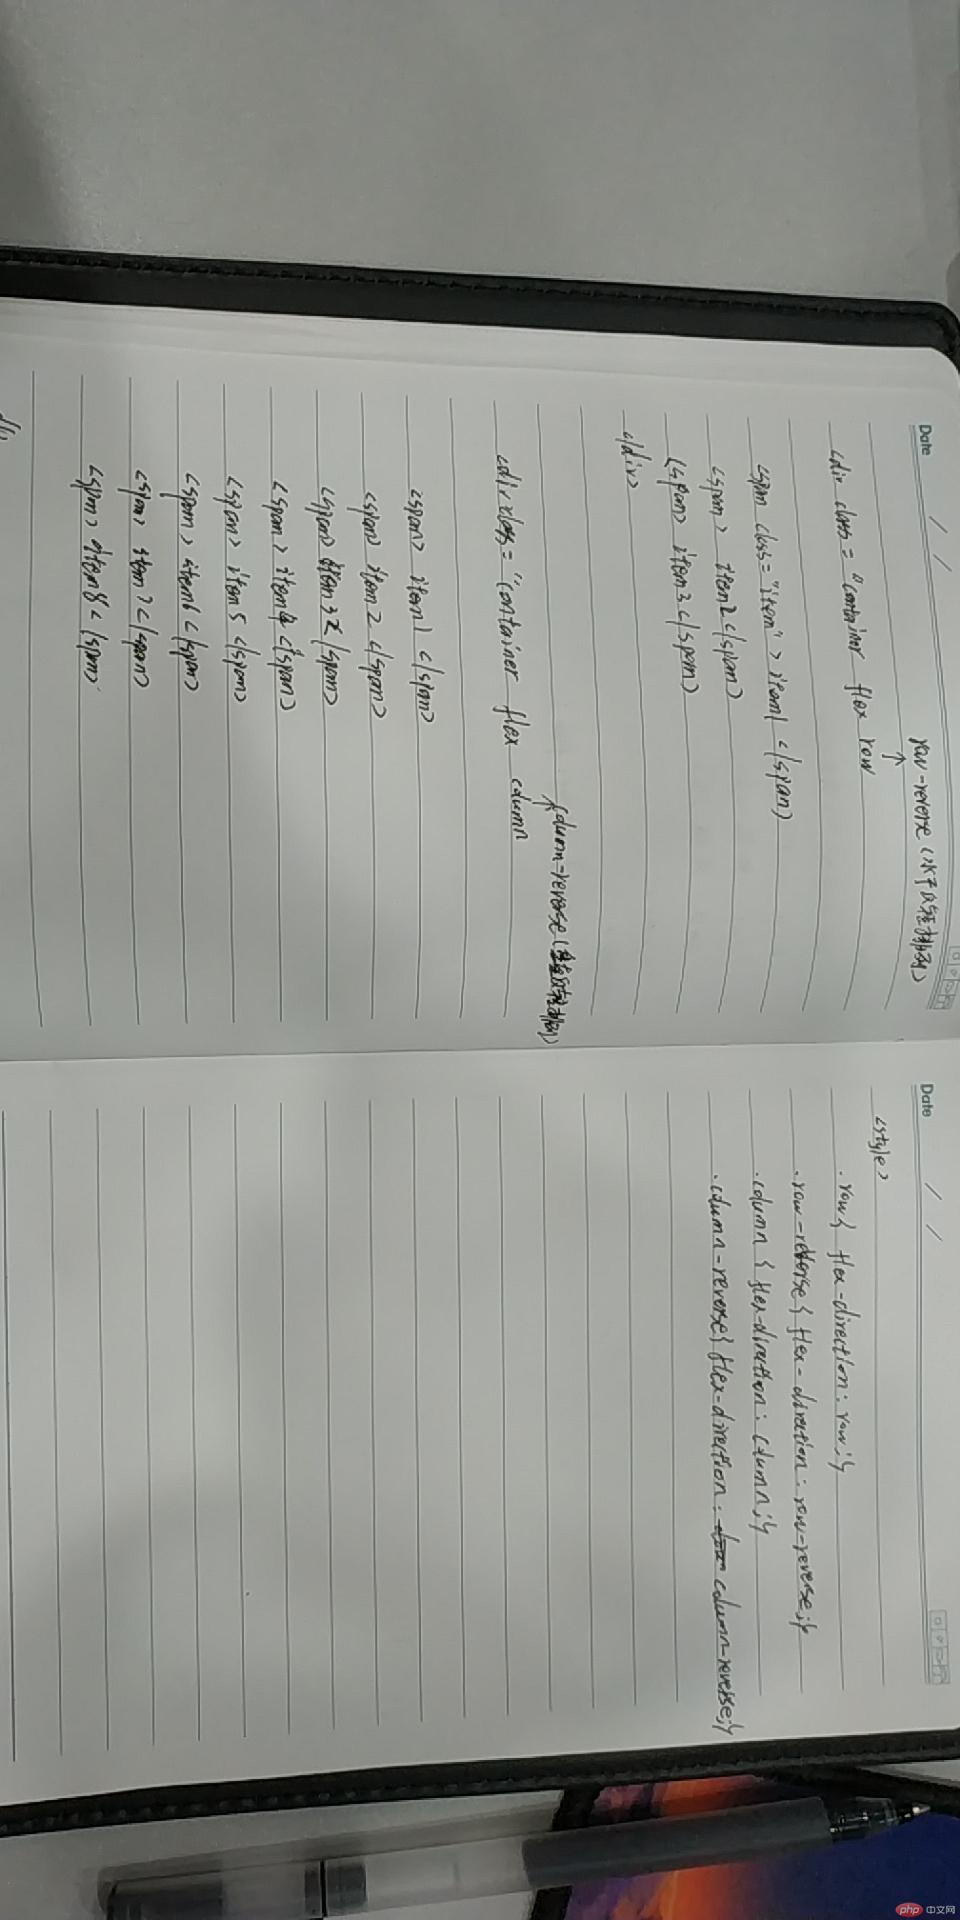 Date / /
row-reverse (水平反转排列)
↑
<div class="container flex row
<span class="item">item1</span>
<span> item2</span>
<span> item3</span>
</div>
column-reverse(垂直反转排列)
<div class="container flex column
<span> item1 </span>
<span> item2 </span>
<span> item3 </span>
<span> item4 </span>
<span> item5 </span>
<span> item6 </span>
<span> item7 </span>
<span> item8 </span>
Date / /
<style>
.row{ flex-direction: row;}
.row-reverse{ flex-direction: row-reverse;}
.column{ flex-direction: column;}
.column-reverse{ flex-direction: column-reverse;}
php 中文网